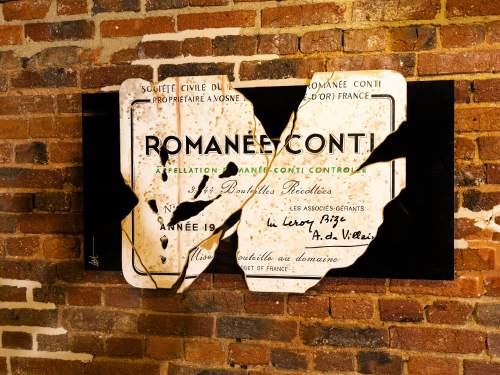 SOCIÉTÉ CIVILE DU ROMANÉE CONTI
PROPRIÉTAIRE A VOSNE E-D'OR) FRANCE
ROMANÉE-CONTI
APPELLATION ROMANÉE-CONTI CONTROLÉE
Bouteilles Récoltées
N°
LES ASSOCIÉS-GÉRANTS
ANNÉE 19
Leroy Bize
A. de Villaine
Mise outeille au domaine
UCT OF FRANCE